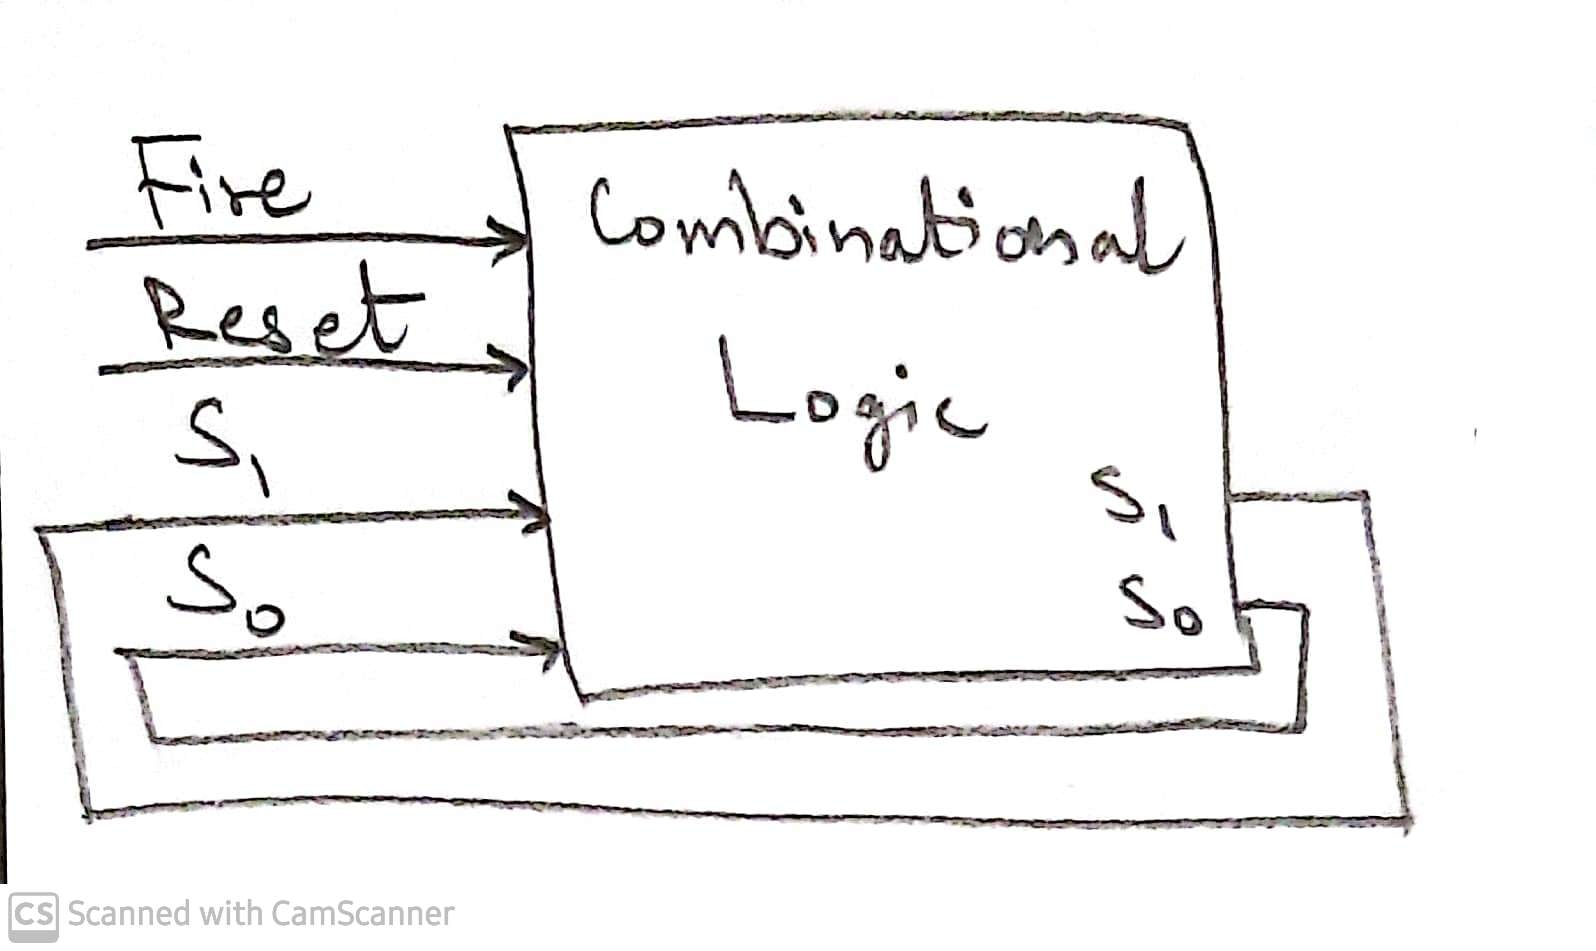 Fire
Reset
S1
S0
Combinational
Logic
S1
S0
CS Scanned with CamScanner